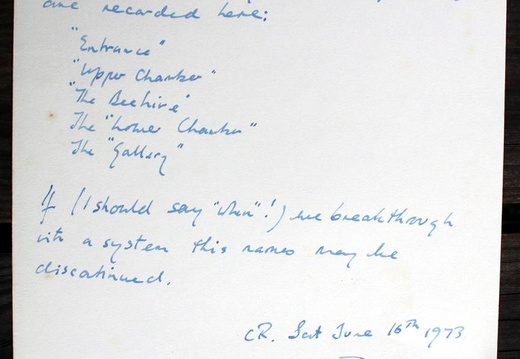 are recorded here:
"Entrance"
"Upper Chamber"
"The Beehive"
The "Lower Chamber"
The "Gallery"
If (I should say "when"!) we breakthrough
into a system this names may be
discontinued.
CR. Sat June 16th 1973.